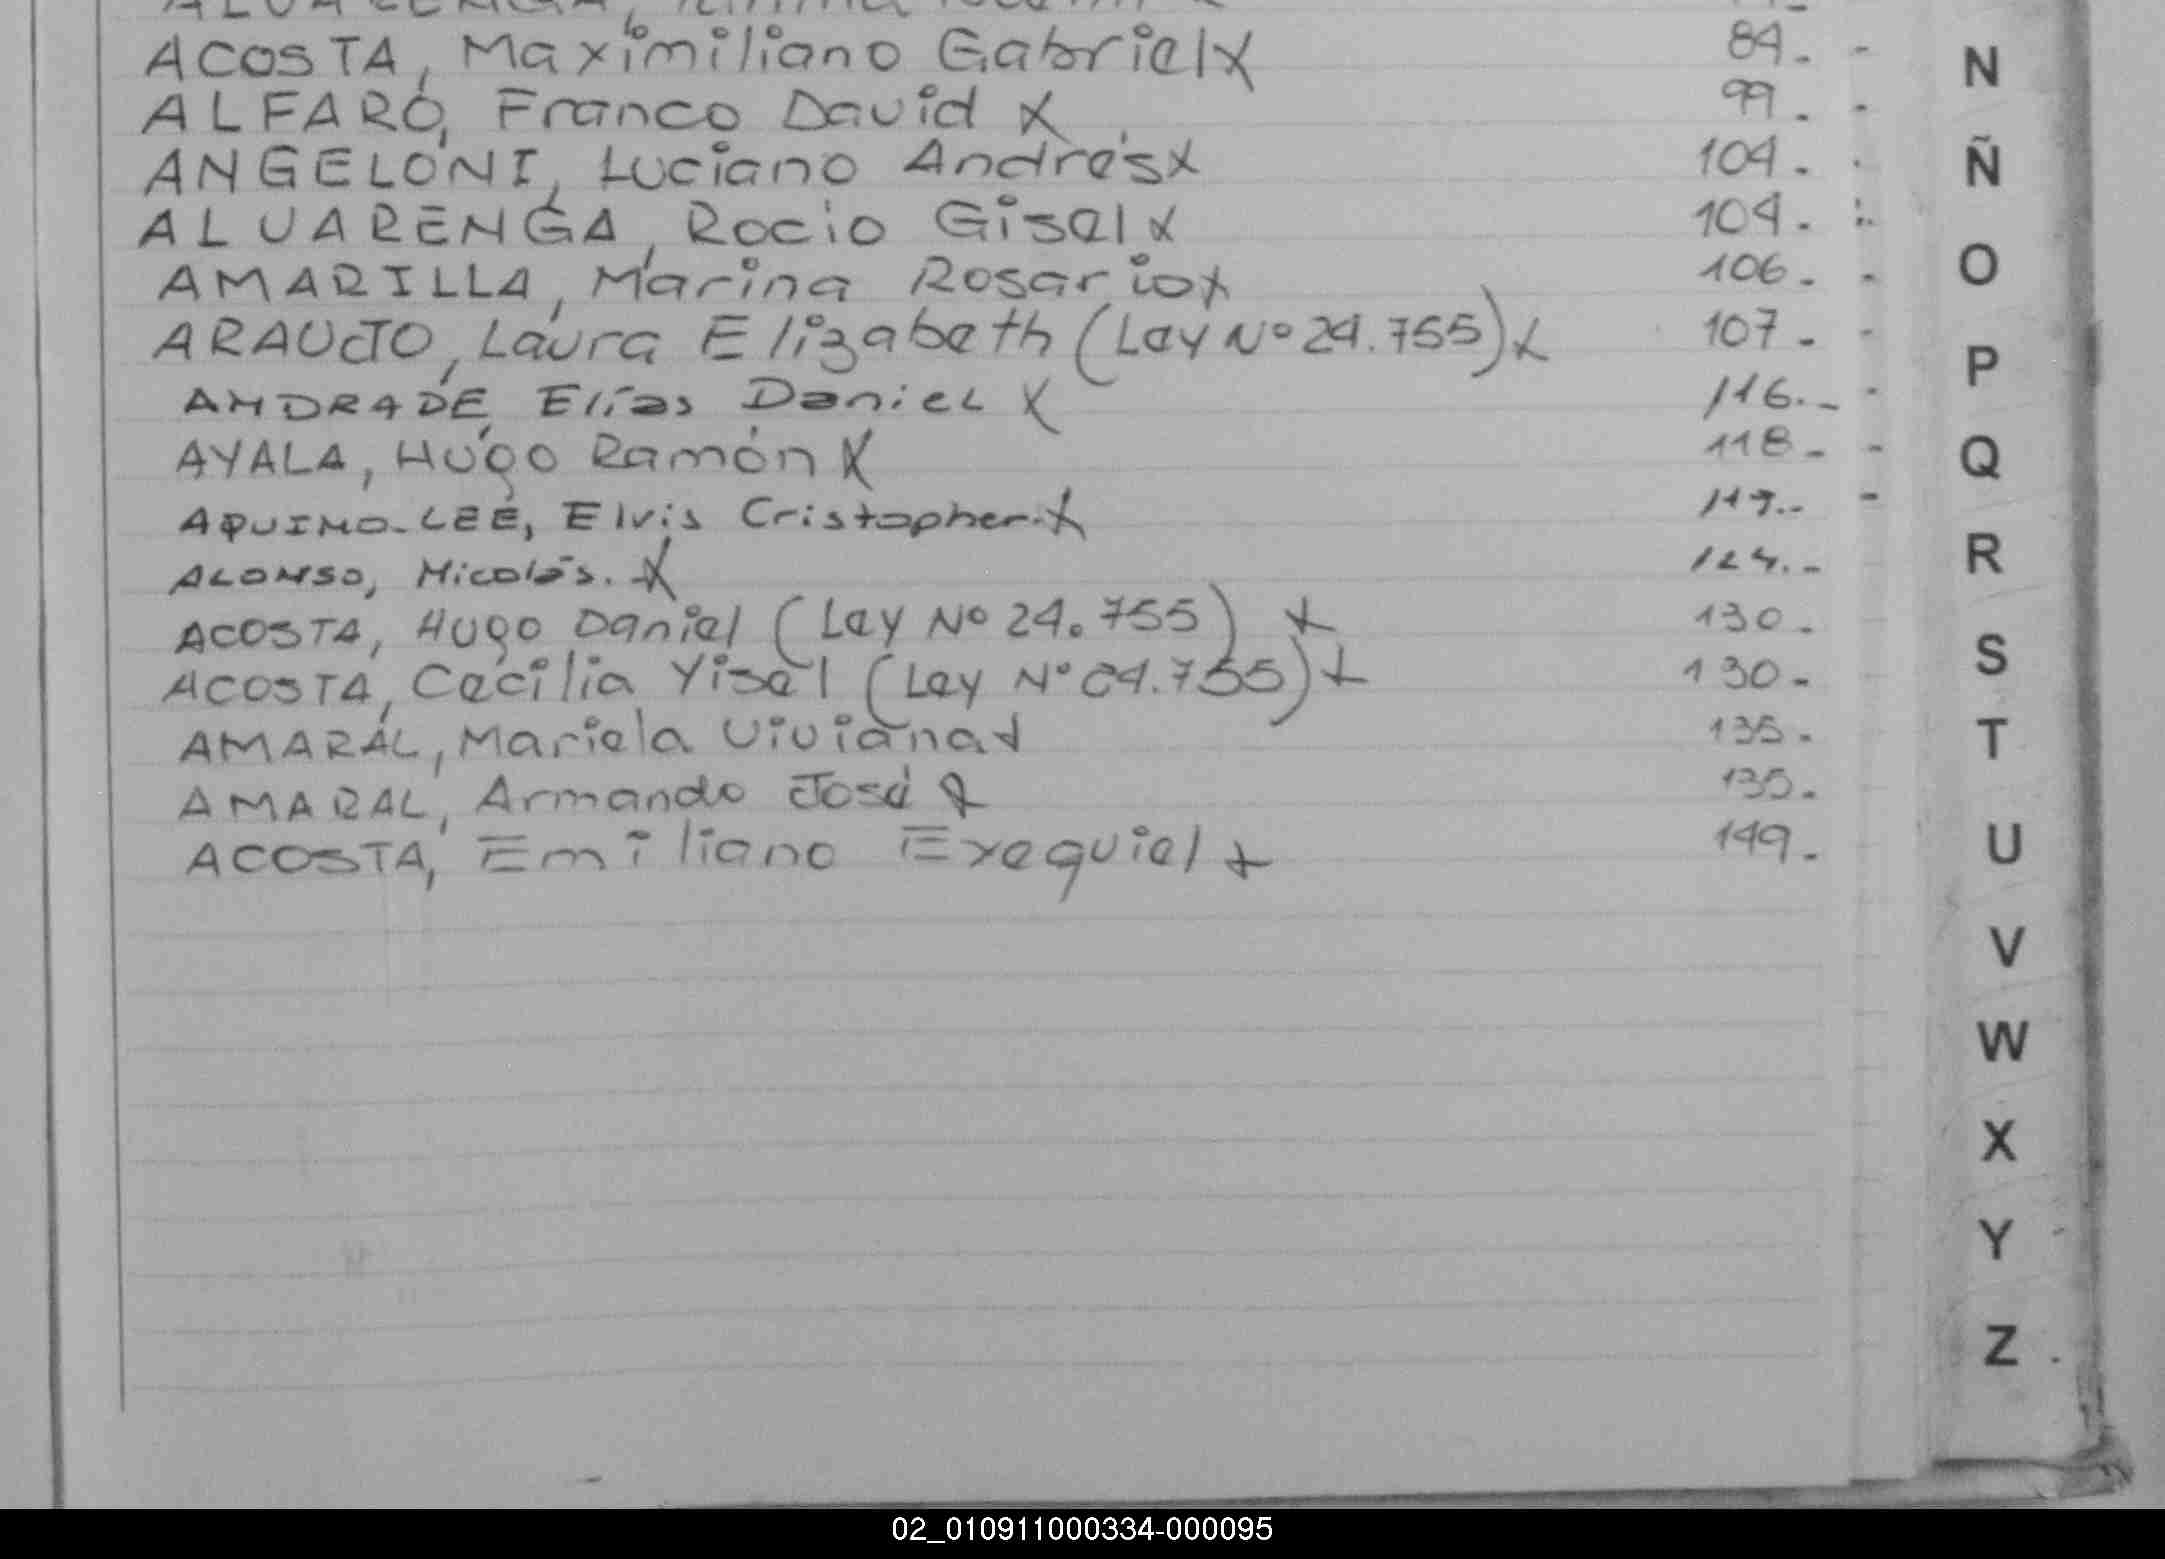 ALVARENGA,
ACOSTA, Maximiliano Gabriel X 84.-
ALFARO, Franco David X 99.-
ANGELONI, Luciano Andrés X 104.-
ALVARENGA, Rocio Gisel X 104.-
AMARILLA, Marina Rosario X 106.-
ARAUJO, Laura Elizabeth (Ley Nº 24.755) X 107.-
ANDRADE, Elías Daniel X 116.-
AYALA, Hugo Ramón X 118.-
AQUINO-LEE, Elvis Cristopher.X
ALONSO, Nicolás. X 124.-
ACOSTA, Hugo Daniel (Ley Nº 24.755) X 130.
ACOSTA, Cecilia Yisel (Ley Nº 24.755) X 130.
AMARAL, Mariela Viviana X 135.
AMARAL, Armando José X 135.
ACOSTA, Emiliano Exequiel X 149.
N
Ñ
O
P
Q
R
S
T
U
V
W
X
Y
Z
02_010911000334-000095